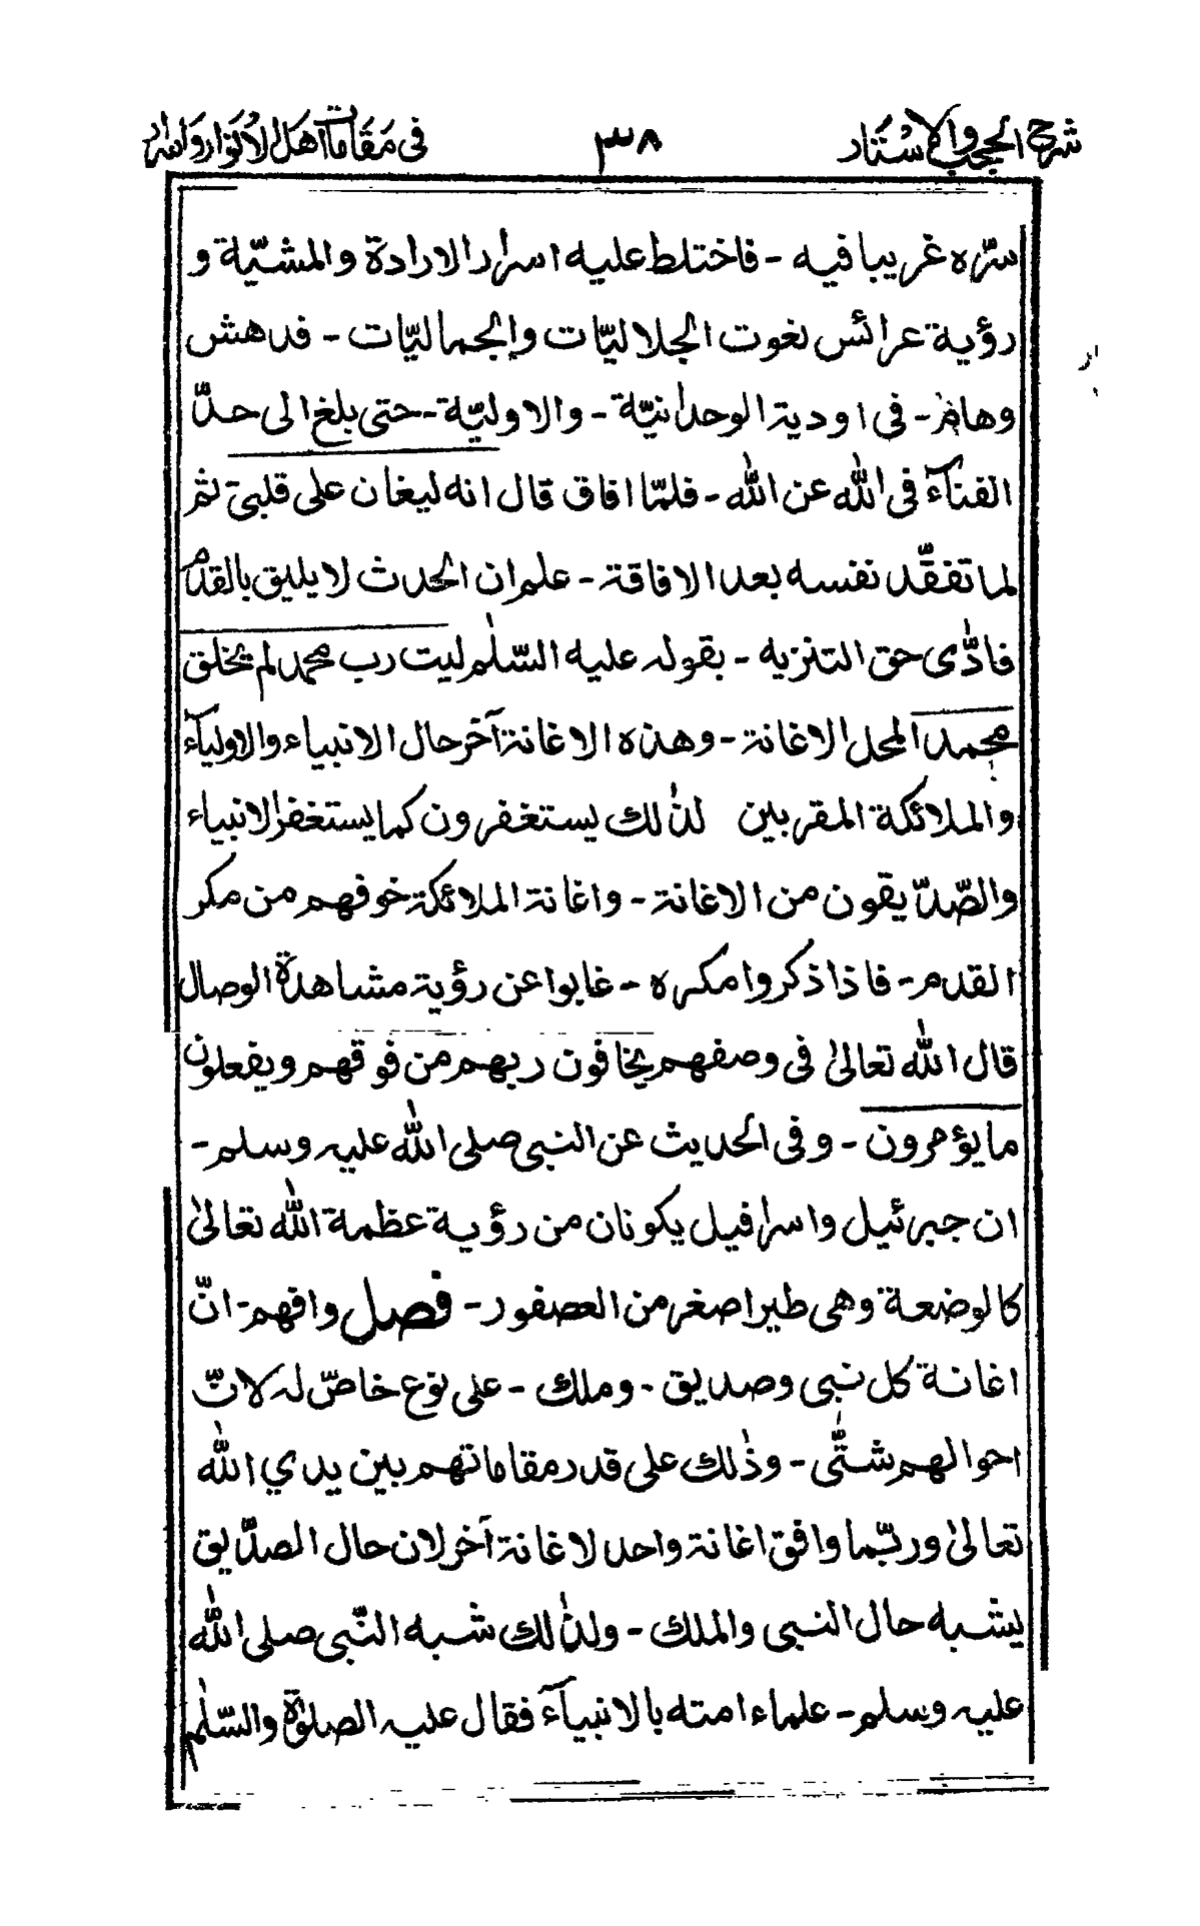 شرح الحجب والاستار ٣٨ فى مقامات اهل الانوار واسرار
سرّه غريبا فيه - فاختلط عليه اسرار الارادة والمشيّة و
رؤية عرائس نعوت الجلاليّات والجماليّات - فدهش
وهام - فى اودية الوحدانيّة - والاوليّة - حتى بلغ الى حدّ
الفناء فى الله عن الله - فلمّا افاق قال انه ليغان على قلبى ثم
لما تفقّد نفسه بعد الافاقة - علم ان الحدث لا يليق بالقدم
فادّى حق التنزيه - بقوله عليه السّلٰم ليت رب محمد لم يخلق
محمدا لمحل الاغانة - وهذه الاغانة آخر حال الانبياء والاولياء
والملائكة المقربين لذٰلك يستغفرون كما يستغفر الانبياء
والصّدّيقون من الاغانة - واغانة الملائكة خوفهم من مكر
القدم - فاذا ذكروا مكره - غابوا عن رؤية مشاهدة الوصال
قال الله تعالىٰ فى وصفهم يخافون ربهم من فوقهم ويفعلون
ما يؤمرون - وفى الحديث عن النبى صلى الله عليه وسلم -
ان جبرئيل واسرافيل يكونان من رؤية عظمة الله تعالىٰ
كالوضعة وهى طير اصغر من العصفور - فصل وافهم - انّ
اغانة كل نبى وصديق - وملك - على نوع خاصّ له لانّ
احوالهم شتّٰى - وذٰلك على قدر مقاماتهم بين يدي الله
تعالىٰ وربّما وافق اغانة واحد لاغانة آخر لان حال الصدّيق
يشبه حال النبى والملك - ولذٰلك شبه النّبى صلى الله
عليه وسلم - علماء امته بالانبيآء فقال عليه الصلوٰة والسّلٰم